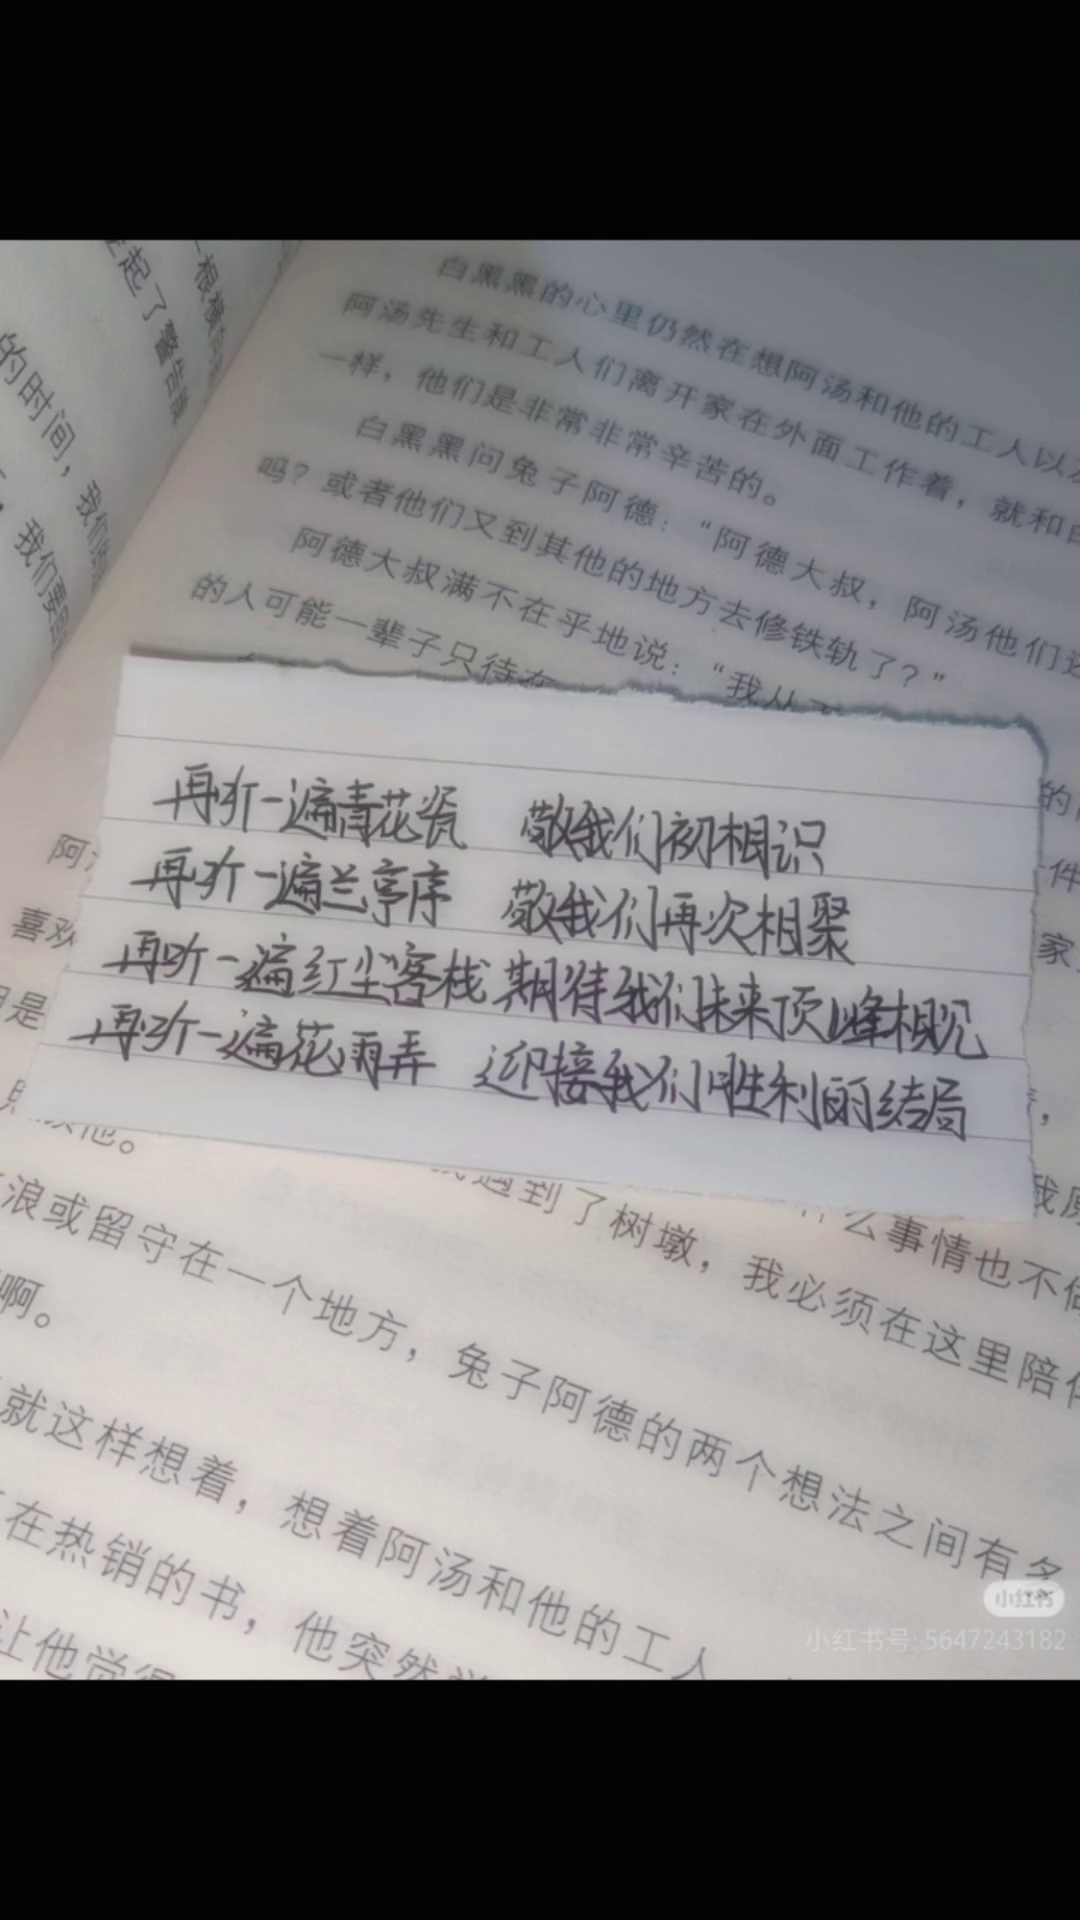 一根
起了警告
的时间，我们
我们要
白黑黑的心里仍然在想阿汤和他的工人以
阿汤先生和工人们离开家在外面工作着，就和
一样，他们是非常非常辛苦的。
白黑黑问兔子阿德：“阿德大叔，阿汤他们
吗？或者他们又到其他的地方去修铁轨了？”
阿德大叔满不在乎地说：“我从
的人可能一辈子只待在
再听一遍青花瓷 敬我们初相识
再听一遍兰亭序 敬我们再次相聚
再听一遍红尘客栈 期待我们未来顶峰相见
再听一遍花雨弄 迎接我们胜利的结局
的
件
家
阿
喜欢
是
他。
遇到了树墩，我必须在这里陪
么事情也不
浪或留守在一个地方，兔子阿德的两个想法之间有多
啊。
就这样想着，想着阿汤和他的工人
在热销的书，他突然
让他觉得
小红书
小红书号: 5647243182